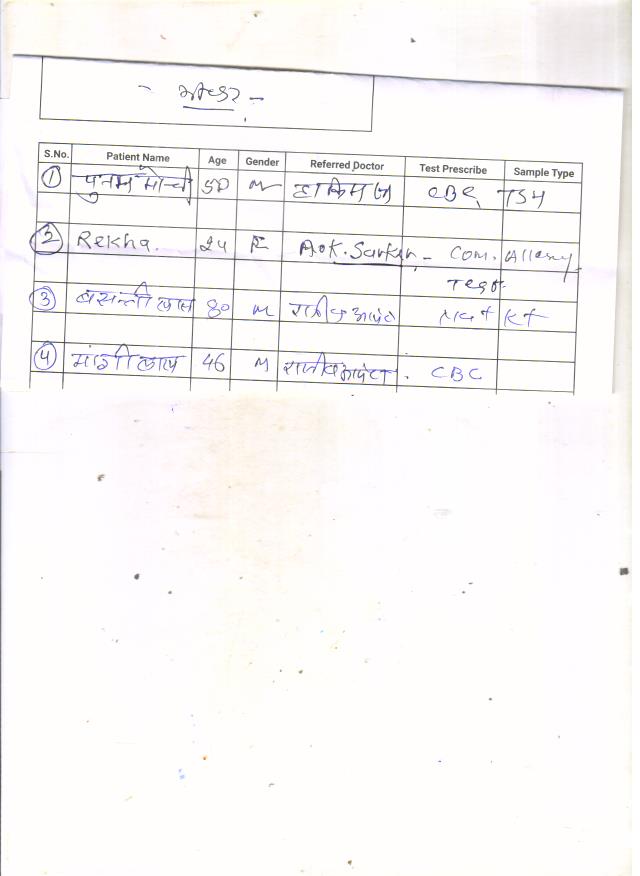 S.No. Patient Name Age Gender Referred Doctor Test Prescribe Sample Type
① पुनम मोची 50 M हाकिम जी CBC, TSH
② Rekha. 24 F A.K. Sarkar - Com. Allergy
Test
③ बसन्ती लाल 80 M
④ मांगी लाल 46 M राजीव . CBC